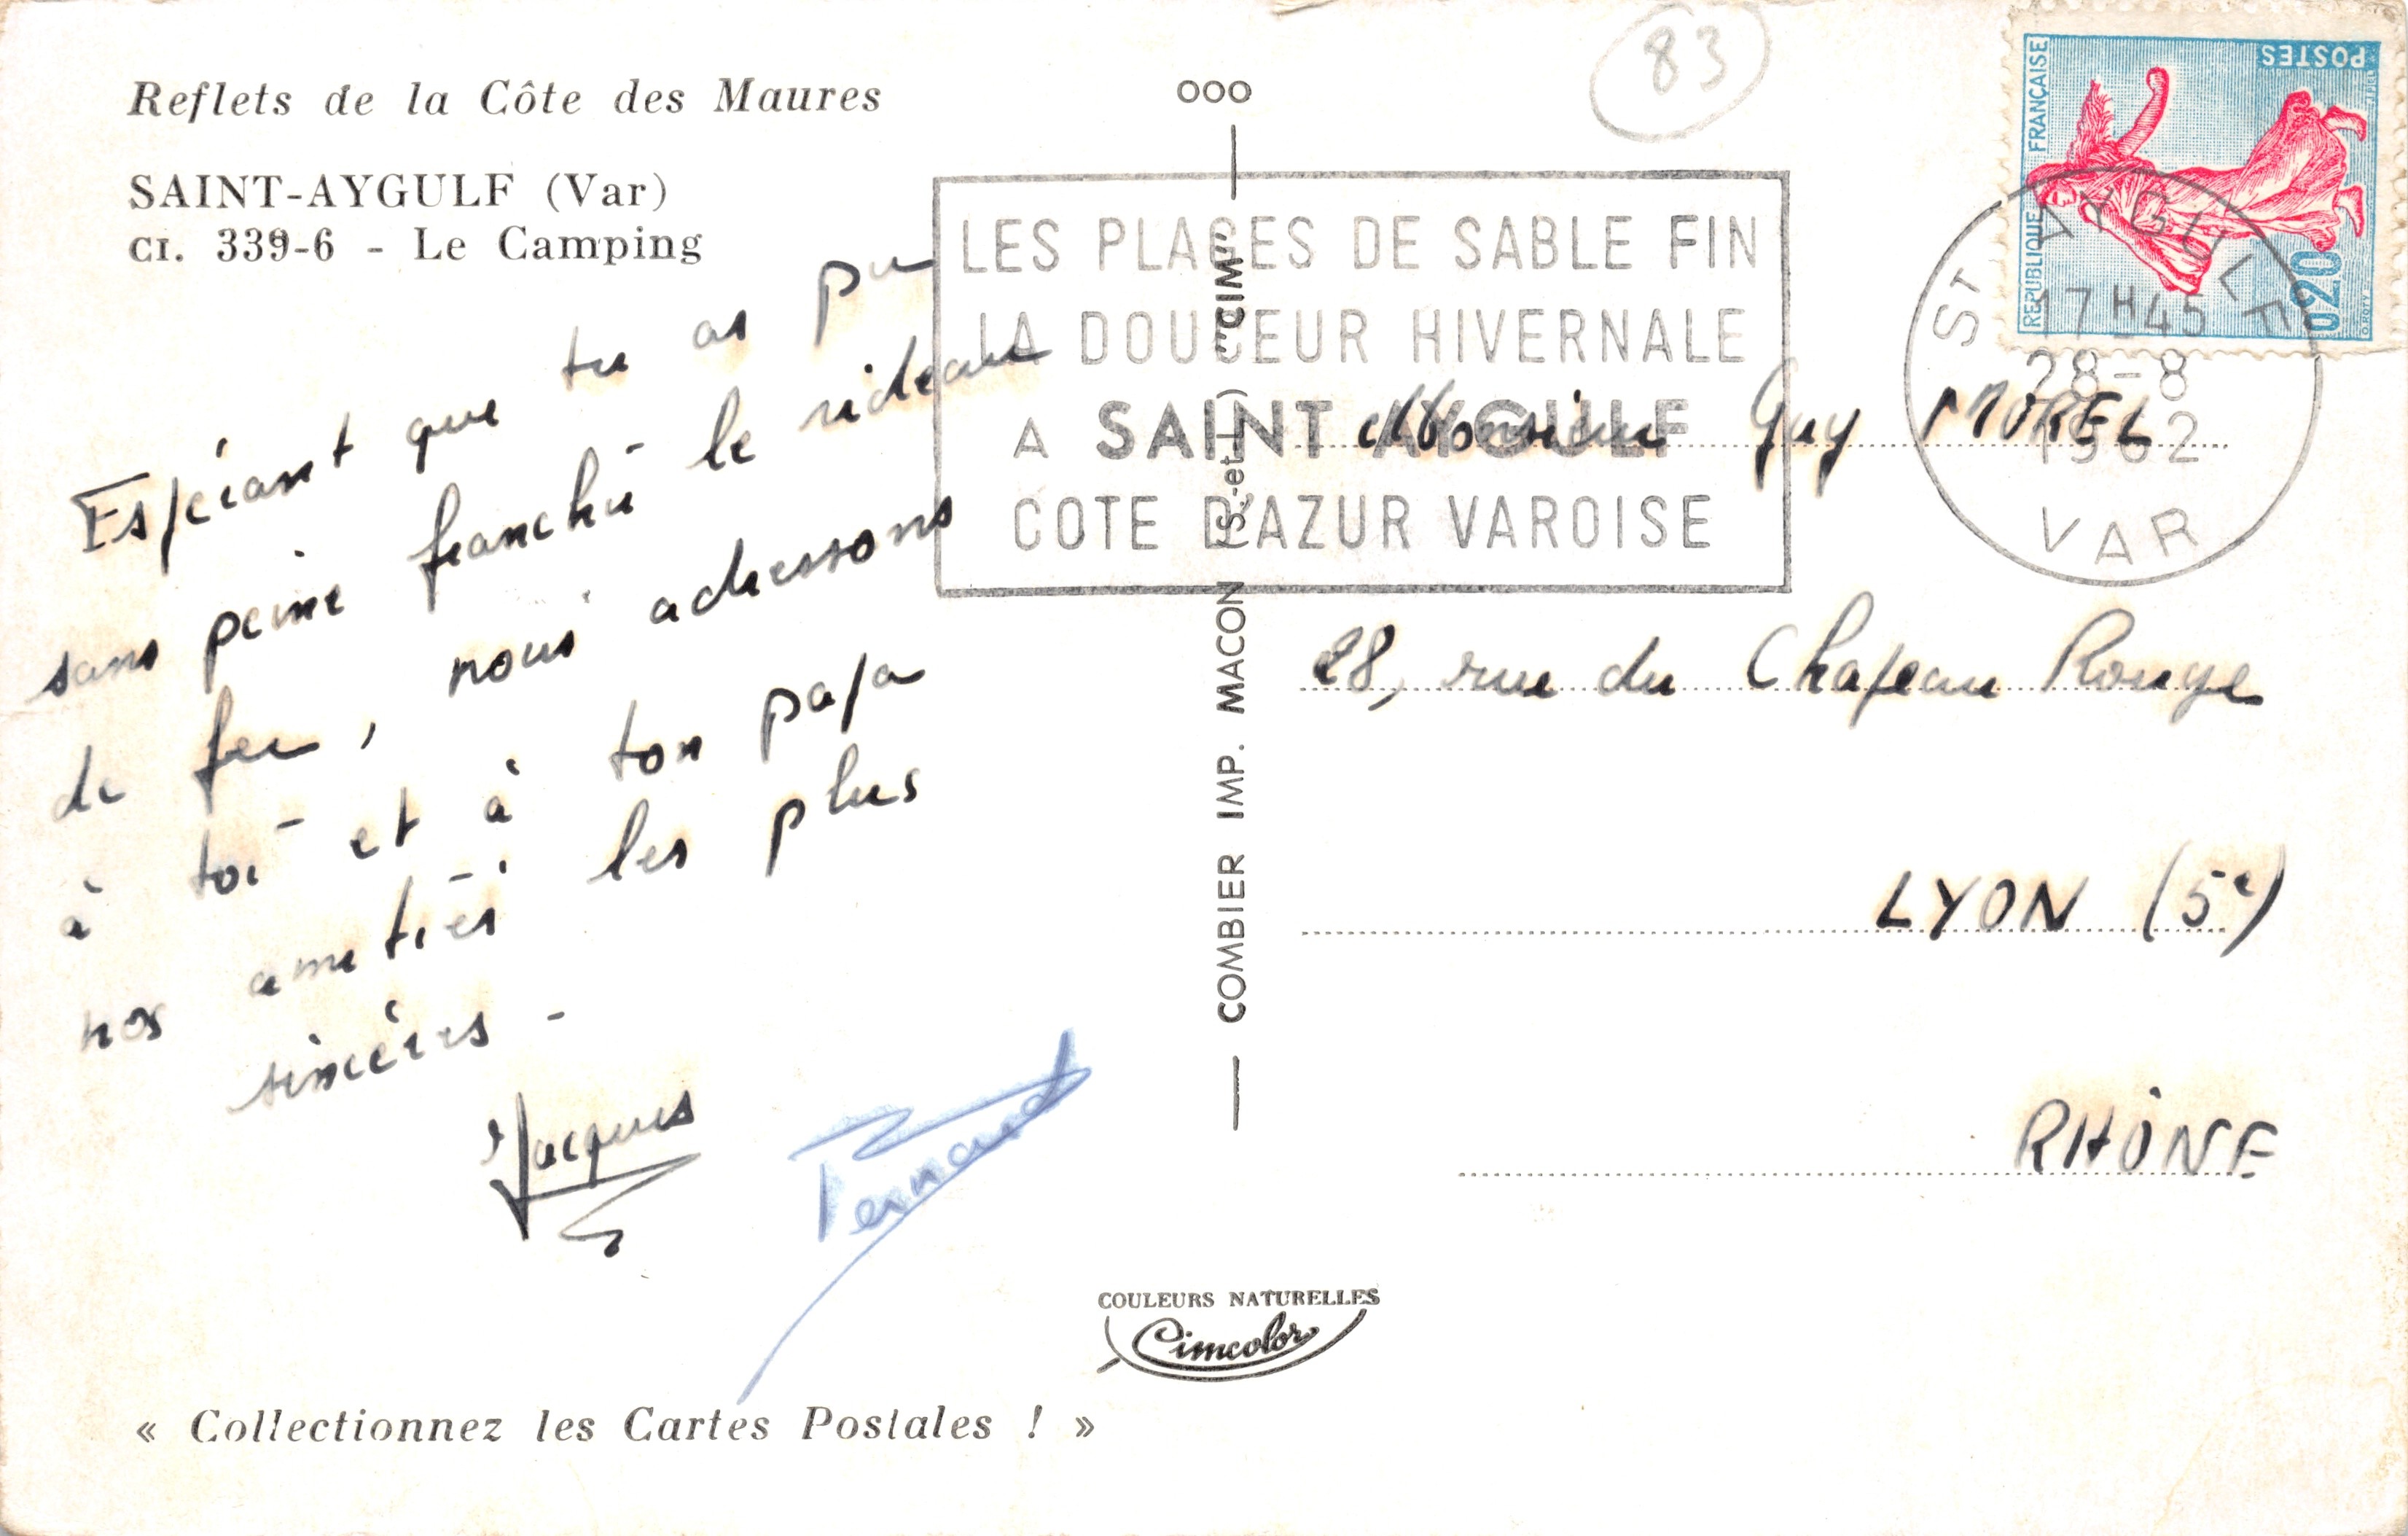 Reflets de la Côte des Maures
SAINT-AYGULF (Var)
CI. 339-6 - Le Camping
Espérant que tu as pu
sans peine franchir le rideau
de fer, nous adressons
à toi et à ton papa
nos amitiés les plus
sincères -
Jacques
Bernard
« Collectionnez les Cartes Postales ! »
ooo
COMBIER IMP. MACON (S.-et-L.) "CIM"
COULEURS NATURELLES
Cimcolor
83
LES PLAGES DE SABLE FIN
LA DOUCEUR HIVERNALE
A SAINT AYGULF
COTE D'AZUR VAROISE
REPUBLIQUE FRANÇAISE
POSTES
0,20
ST AYGULF
17H45
28-8
1962
VAR
Monsieur Guy MOREL
28, rue du Chapeau Rouge
LYON (5e)
RHÔNE